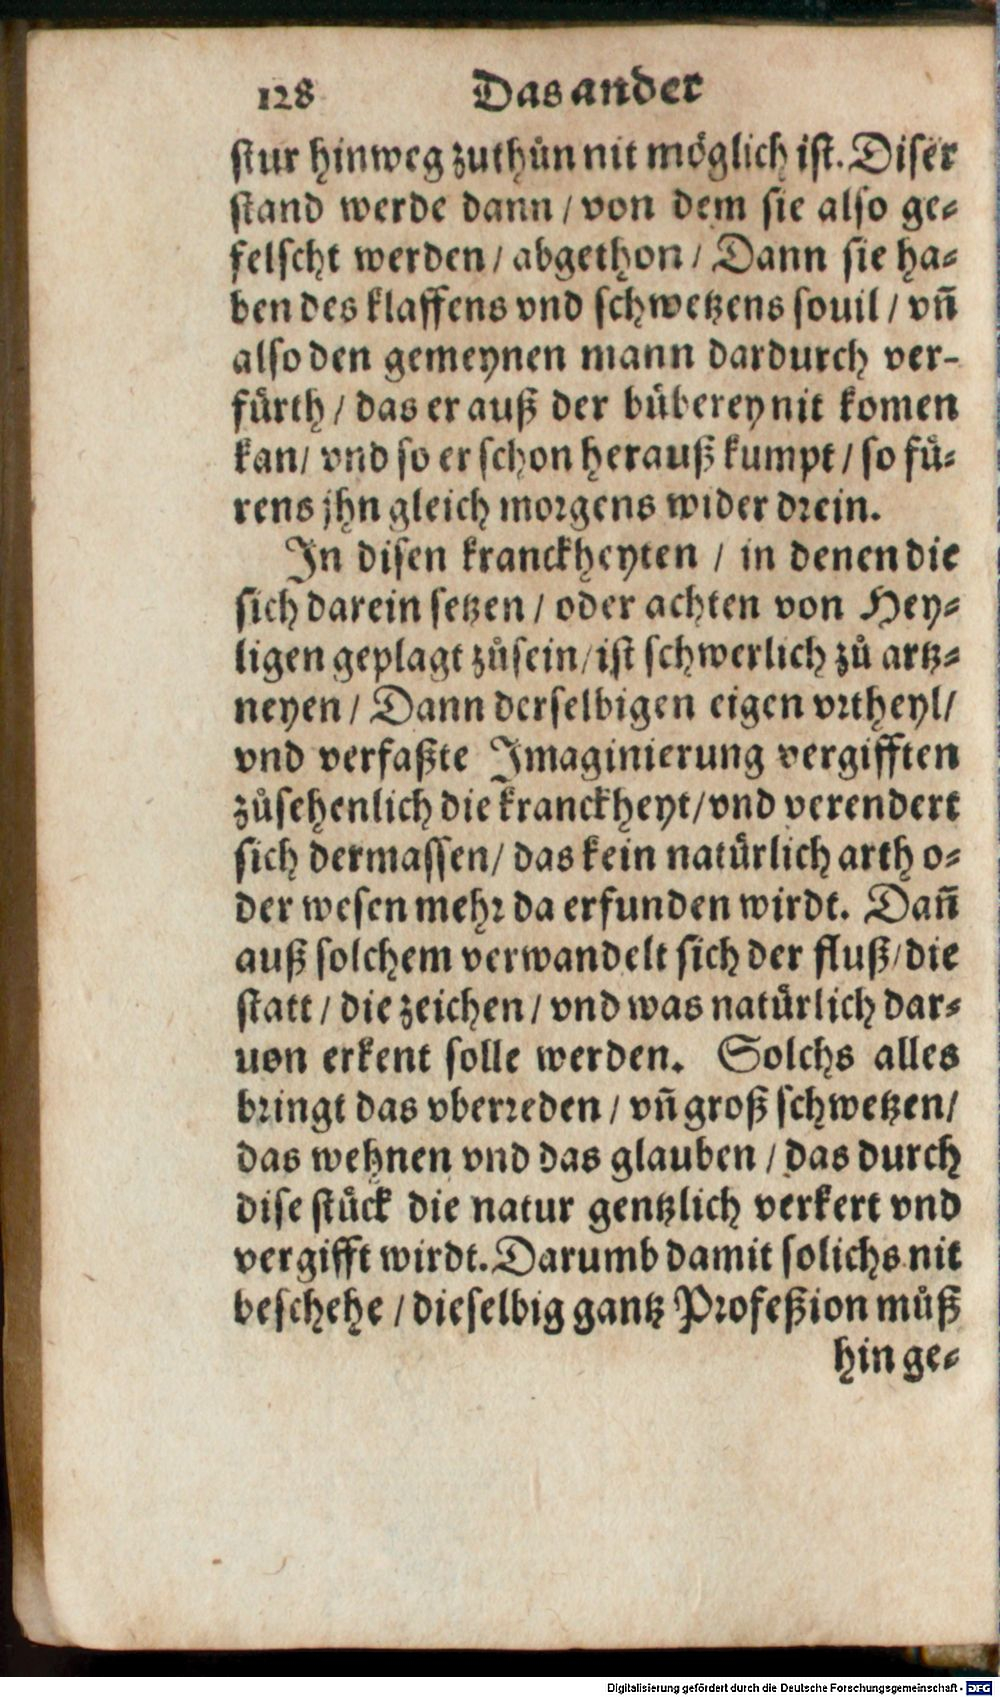 128 Das ander
stur hinweg zuthůn nit möglich ist. Diser
stand werde dann / von dem sie also ge⸗
felscht werden / abgethon / Dann sie ha⸗
ben des klaffens vnd schwetzens souil / vñ
also den gemeynen mann dardurch ver-
fürth / das er auß der bůberey nit komen
kan / vnd so er schon herauß kumpt / so fü⸗
rens jhn gleich morgens wider drein.
In disen kranckheyten / in denen die
sich darein setzen / oder achten von Hey⸗
ligen geplagt zůsein / ist schwerlich zů artz⸗
neyen / Dann derselbigen eigen vrtheyl /
vnd verfaßte Imaginierung vergifften
zůsehenlich die kranckheyt / vnd verendert
sich dermassen / das kein natürlich arth o⸗
der wesen mehr da erfunden wirdt. Dañ
auß solchem verwandelt sich der fluß / die
statt / die zeichen / vnd was natürlich dar⸗
uon erkent solle werden. Solchs alles
bringt das vberreden / vñ groß schwetzen /
das wehnen vnd das glauben / das durch
dise stück die natur gentzlich verkert vnd
vergifft wirdt. Darumb damit solichs nit
beschehe / dieselbig gantz Profeßion můß
hin ge⸗
Digitalisierung gefördert durch die Deutsche Forschungsgemeinschaft - DFG